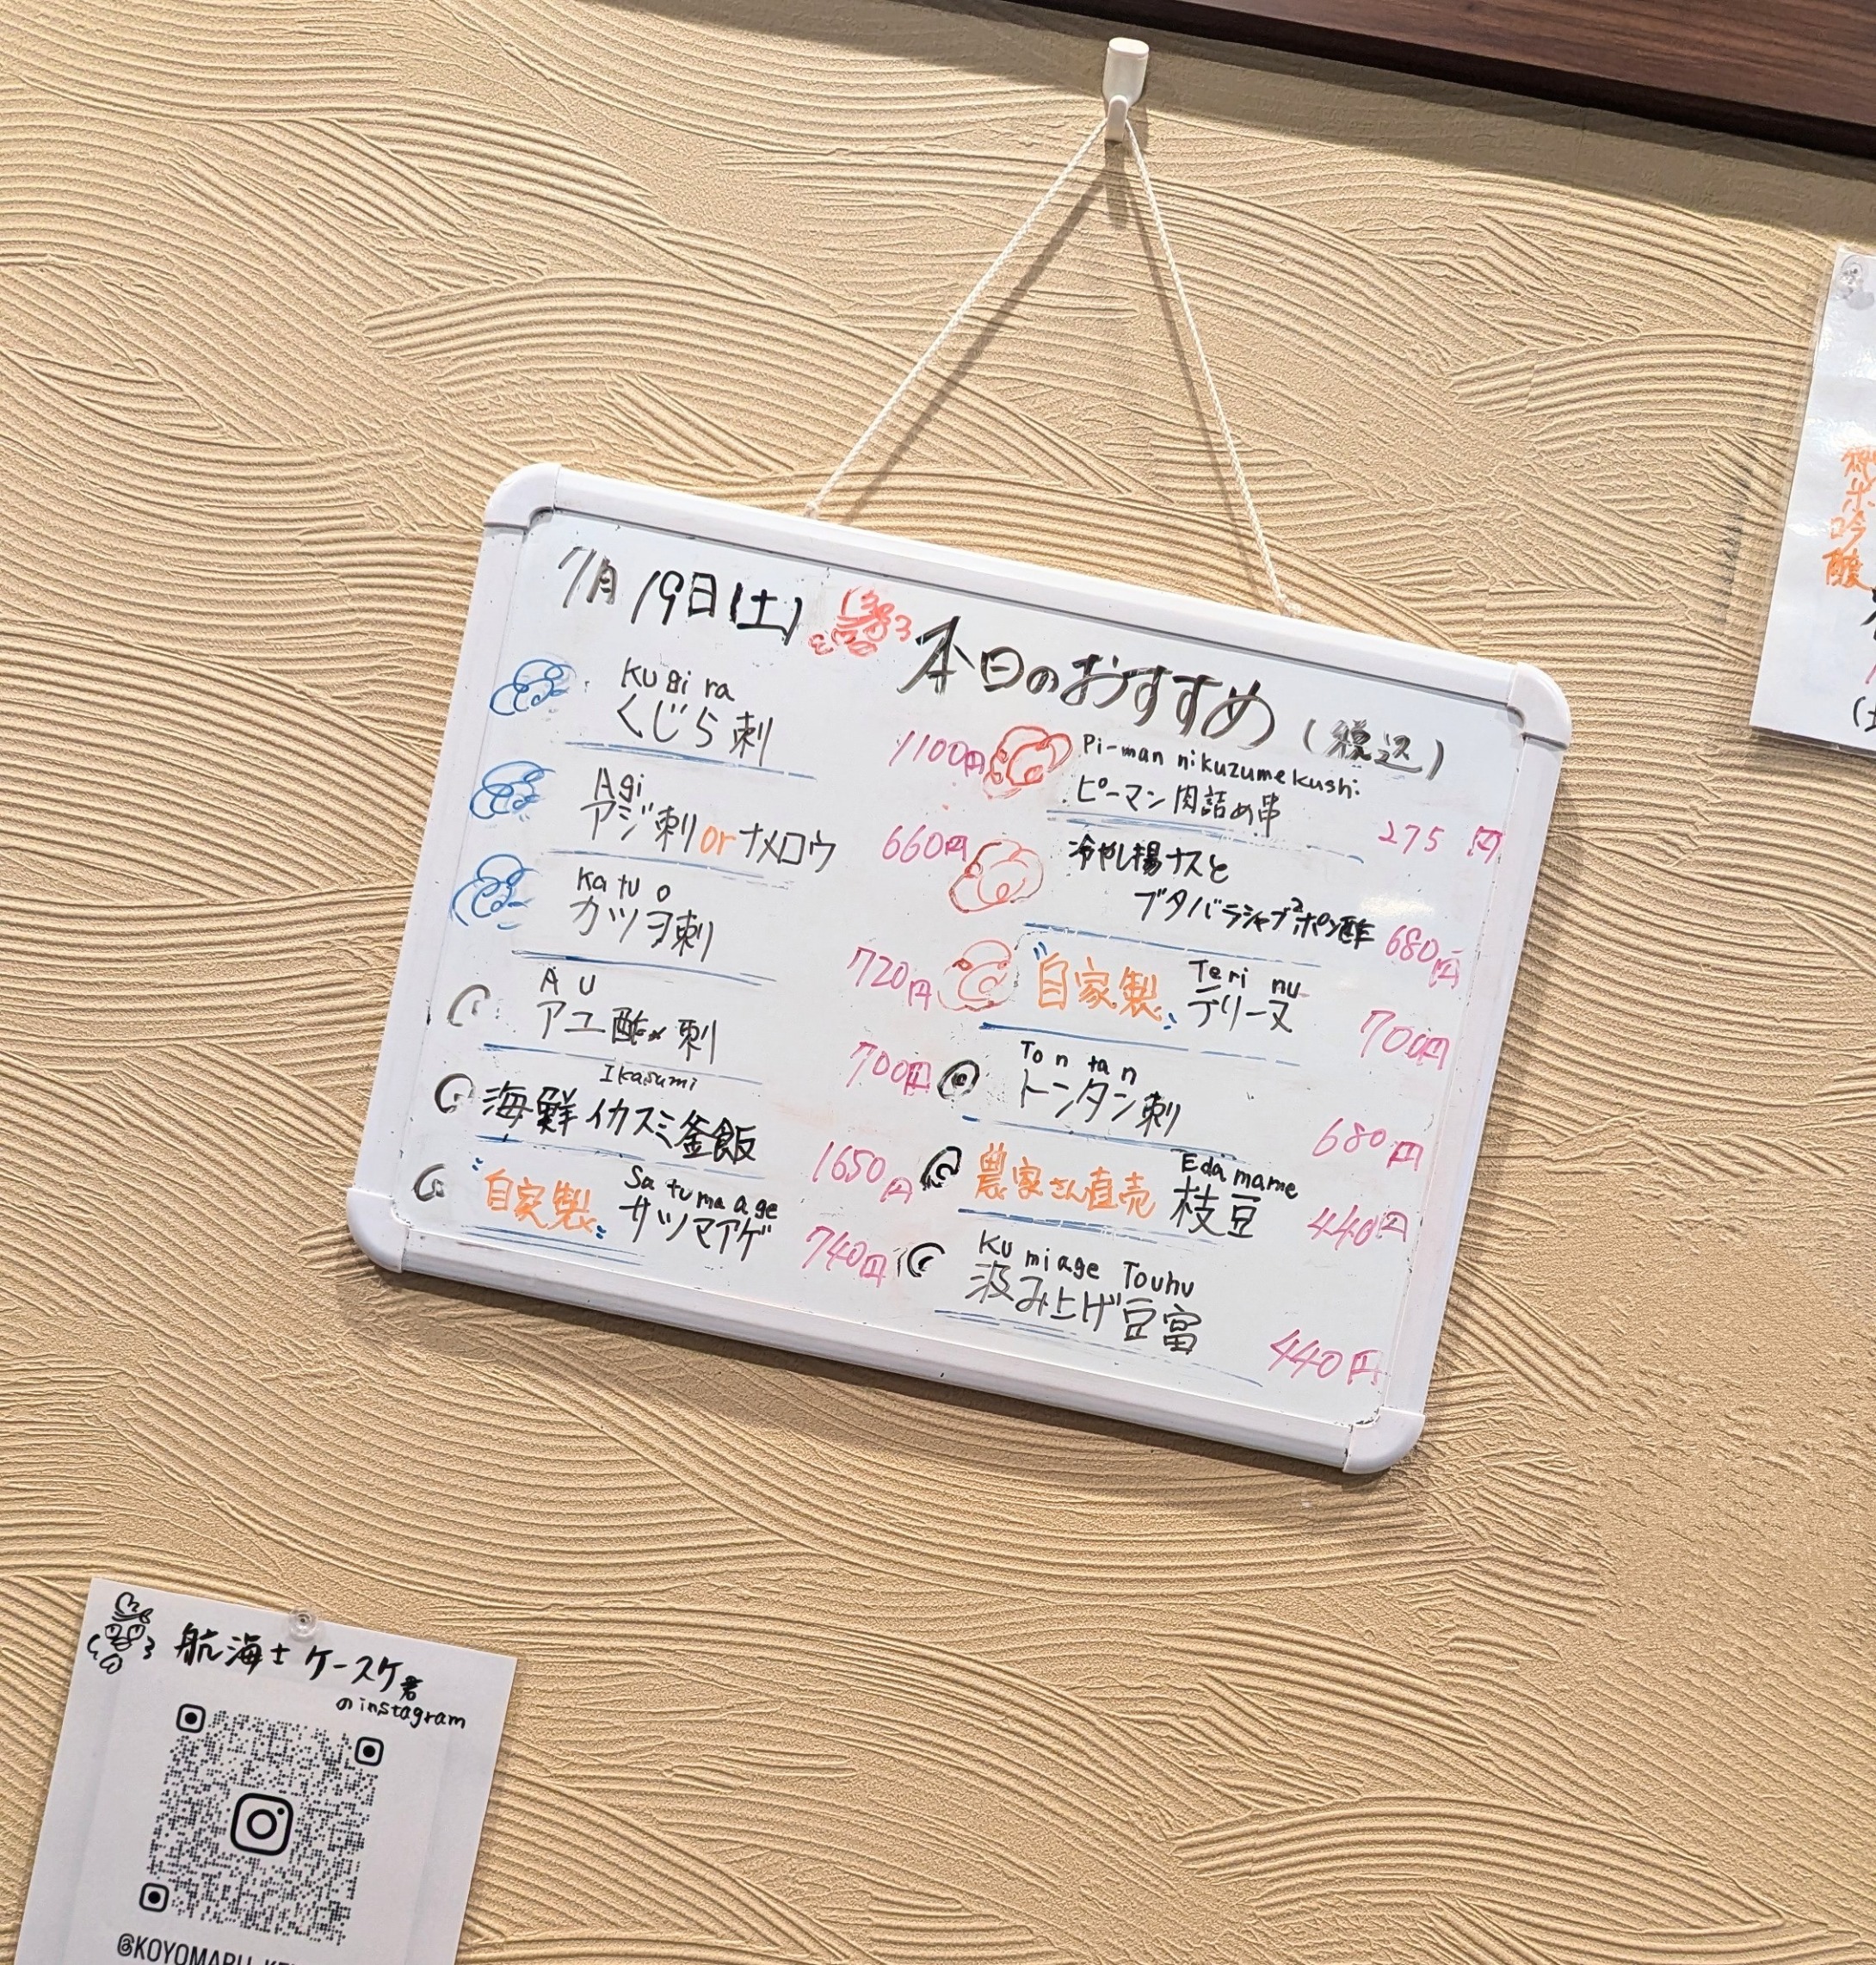 7月19日(土)
本日のおすすめ(税込)
Kugira
くじら刺 1100円
Agi
アジ刺orナメロウ 660円
Katuo
カツヲ刺 720円
AU
アユ酢〆刺 700円
Ikasumi
海鮮イカスミ釜飯 1650円
Satumaage
"自家製" サツマアゲ 740円
Pi-man nikuzumekushi
ピーマン肉詰め串 275円
冷やし揚ナスと
ブタバラシャブ2ポン酢 680円
Terinu
"自家製" テリーヌ 700円
Tontan
トンタン刺 680円
Edamame
農家さん直売 枝豆 440円
Kumiage Touhu
汲み上げ豆富 440円
純米吟醸
航海士ケースケ君
のinstagram